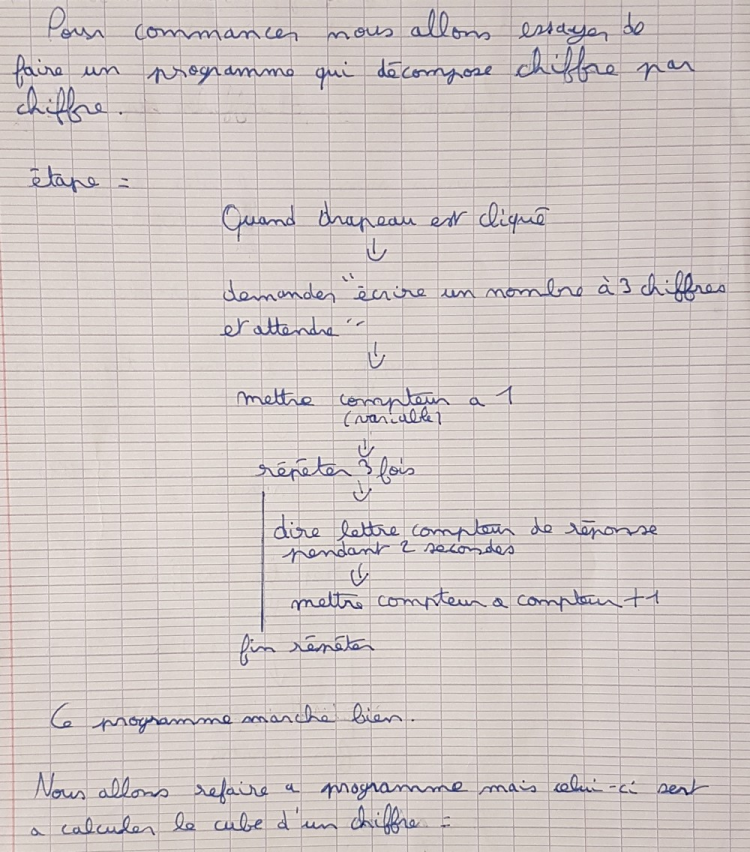 Pour commancer nous allons essayer de
faire un programme qui décompose chiffre par
chiffre.
étape =
Quand drapeau est cliqué
↓
demander "écrire un nombre à 3 chiffres
et attendre"
↓
mettre compteur a 1
(variable)
↓
répéter 3 fois
↓
dire lettre compteur de réponse
pendant 2 secondes
↓
mettre compteur a compteur +1
fin répéter
Ce programme marche bien.
Nous allons refaire a programme mais celui-ci sert
a calculer le cube d'un chiffre =